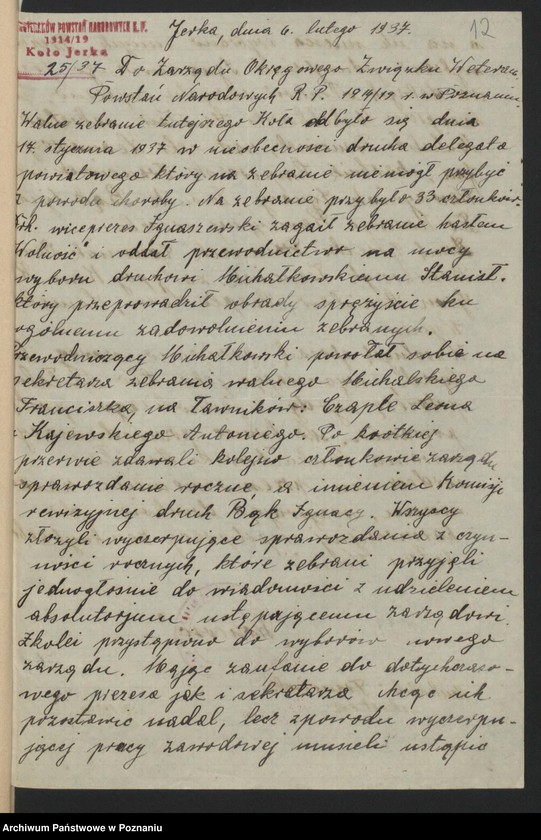 Jerka, dnia 6. lutego 1937.
12
POWSTAŃ NARODOWYCH R.P.
1914/19
Koło Jerka
25/37 Do Zarządu Okręgowego Związku Weteran.
Powstań Narodowych R.P. 1914/19 r. w Poznaniu
Walne zebranie tutejszego Koła odbyło się dnia
17. stycznia 1937 w nieobecności druha delegata
powiatowego który na zebranie niemógł przybyć
z powodu choroby. Na zebranie przybyło 33 członków.
Drh. wiceprezes Ignaszewski zagaił zebranie hasłem
Wolność" i oddał przewodnictwo na mocy
wyboru druchowi Michałkowskiemu Stanisł.
który przeprowadził obrady sprężyście ku
ogólnemu zadowolnieniu zebranych.
Przewodniczący Michałkowski powołał sobie na
sekretarza zebrania walnego Michalskiego
Franciszka, na ławników: Czaple Leona
i Kajewskiego Antoniego. Po krótkiej
przerwie zdawali kolejno członkowie zarządu
sprawozdanie roczne, a imieniem Komisji
rewizyjnej druch Bąk Ignacy. Wszyscy
złożyli wyczerpujące sprawozdania z czyn-
ności rocznych, które zebrani przyjęli
jednogłośnie do wiadomości z udzieleniem
absolutorjum ustępującemu zarządowi.
Zkolei przystąpiono do wyborów nowego
zarządu. Mając zaufanie do dotychczaso-
wego prezesa jak i sekretarza chcąc ich
pozostawić nadal, lecz zpowodu wyczerpu-
jącej pracy zawodowej musieli ustąpić
Archiwum Państwowe w Poznaniu